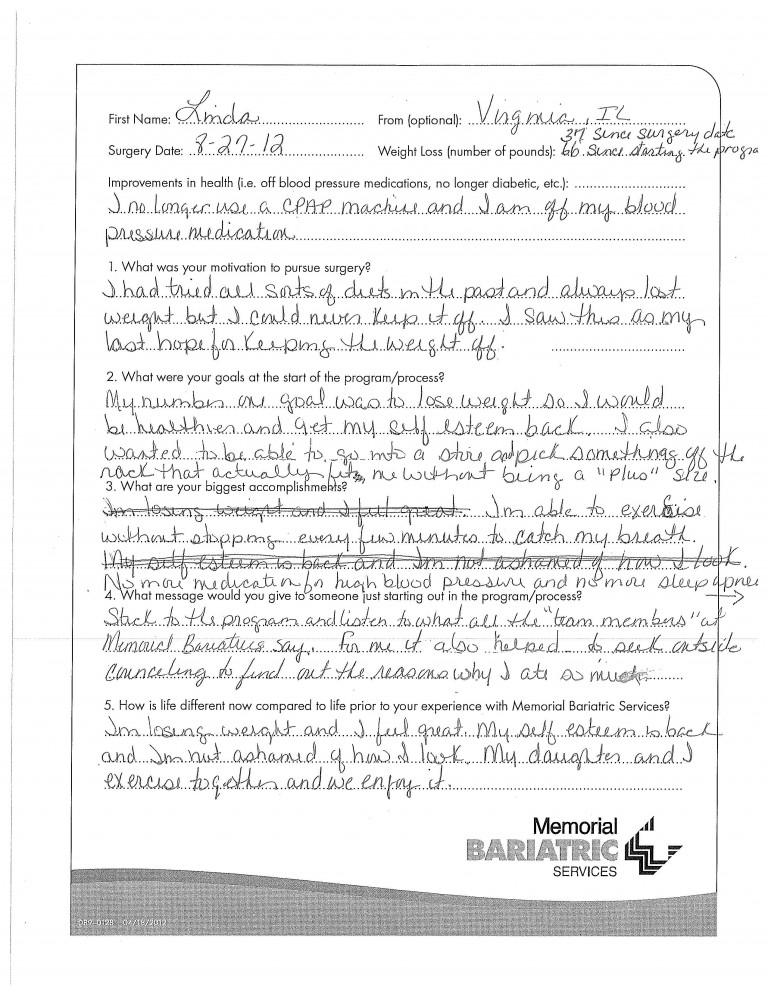 First Name: Linda From (optional): Virginia, IL
37 since surgery date
Surgery Date: 8-27-12 Weight Loss (number of pounds): 66 since starting the progra
Improvements in health (i.e. off blood pressure medications, no longer diabetic, etc.):
I no longer use a CPAP machine and I am off my blood
pressure medication
1. What was your motivation to pursue surgery?
I had tried all sorts of diets in the past and always lost
weight but I could never keep it off. I saw this as my
last hope for keeping the weight off.
2. What were your goals at the start of the program/process?
My number one goal was to lose weight so I would
be healthier and get my self esteem back. I also
wanted to be able to go into a store and pick something off the
rack that actually fits me without being a "plus" size.
3. What are your biggest accomplishments?
I'm losing weight and I feel great. I'm able to exercise
without stopping every few minutes to catch my breath.
My self esteem is back and I'm not ashamed of how I look.
No more medication for high blood pressure and no more sleep apnea
4. What message would you give to someone just starting out in the program/process? →
Stick to the program and listen to what all the "team members" at
Memorial Bariatrics say. For me it also helped to seek outside
counceling to find out the reasons why I ate so much.
5. How is life different now compared to life prior to your experience with Memorial Bariatric Services?
I'm losing weight and I feel great. My self esteem is back
and I'm not ashamed of how I look. My daughter and I
exercise together and we enjoy it.
Memorial
BARIATRIC
SERVICES
089-0128 04/18/2012